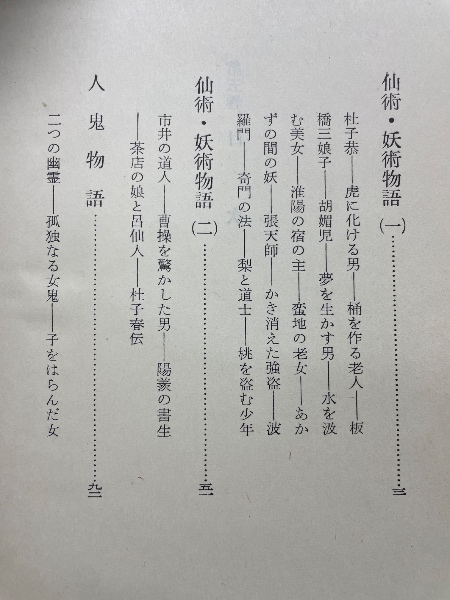 仙術・妖術物語(一)……………………三
杜子恭――虎に化ける男――桶を作る老人――板
橋三娘子――胡媚児――夢を生かす男――水を汲
む美女――淮陽の宿の主――蛮地の老女――あか
ずの間の妖――張天師――かき消えた強盗――波
羅門――奇門の法――梨と道士――桃を盗む少年
仙術・妖術物語(二)……………………五一
市井の道人――曹操を驚かした男――陽羨の書生
――茶店の娘と呂仙人――杜子春伝
人鬼物語……………………九一
二つの幽霊――孤独なる女鬼――子をはらんだ女